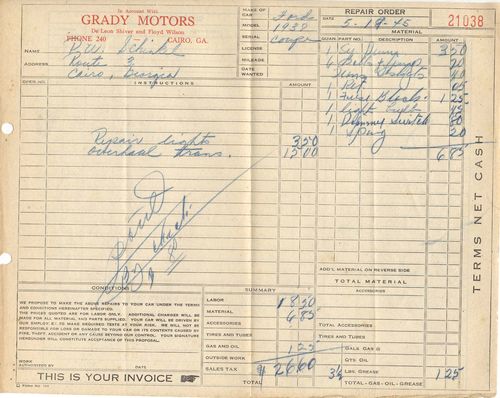 In Account With
GRADY MOTORS
De Leon Shiver and Floyd Wilson
PHONE 240 CAIRO, GA.
MAKE OF CAR Ford
MODEL 1938
SERIAL Coupe
LICENSE
MILEAGE
DATE WANTED
REPAIR ORDER
DATE 5-19-45
21038
NAME
ADDRESS Route 3
Cairo, Georgia
MATERIAL
QUAN. PART NO. DESCRIPTION AMOUNT
1 350
6 20
40
1 05
1 Fuse Block 1 25
1 Light 45
1 Dimmer Switch 80
1 20
6 85
OPER. NO. INSTRUCTIONS AMOUNT
Repair lights 350
Overhaul trans. 1500
TERMS NET CASH
ADD'L MATERIAL ON REVERSE SIDE
TOTAL MATERIAL
ACCESSORIES
CONDITIONS
WE PROPOSE TO MAKE THE ABOVE REPAIRS TO YOUR CAR UNDER THE TERMS AND CONDITIONS HEREINAFTER SPECIFIED.
THE PRICES QUOTED ARE FOR LABOR ONLY. ADDITIONAL CHARGES WILL BE MADE FOR ALL MATERIAL AND PARTS SUPPLIED. YOUR CAR WILL BE DRIVEN BY OUR EMPLOYEES TO MAKE REQUIRED TESTS AT YOUR RISK. WE WILL NOT BE RESPONSIBLE FOR LOSS OR DAMAGE TO YOUR CAR OR ITS CONTENTS CAUSED BY FIRE, THEFT, ACCIDENT OR ANY CAUSE BEYOND OUR CONTROL. YOUR SIGNATURE HEREUNDER WILL CONSTITUTE ACCEPTANCE OF THIS PROPOSAL.
WORK AUTHORIZED BY
THIS IS YOUR INVOICE
SUMMARY
LABOR 18 50
MATERIAL 6 85
ACCESSORIES
TIRES AND TUBES
GAS AND OIL 1 25
OUTSIDE WORK
SALES TAX
TOTAL $26 60
TOTAL ACCESSORIES
TIRES AND TUBES
GALS. GAS @
QTS. OIL
3½ LBS. GREASE 1 25
TOTAL-GAS-OIL-GREASE